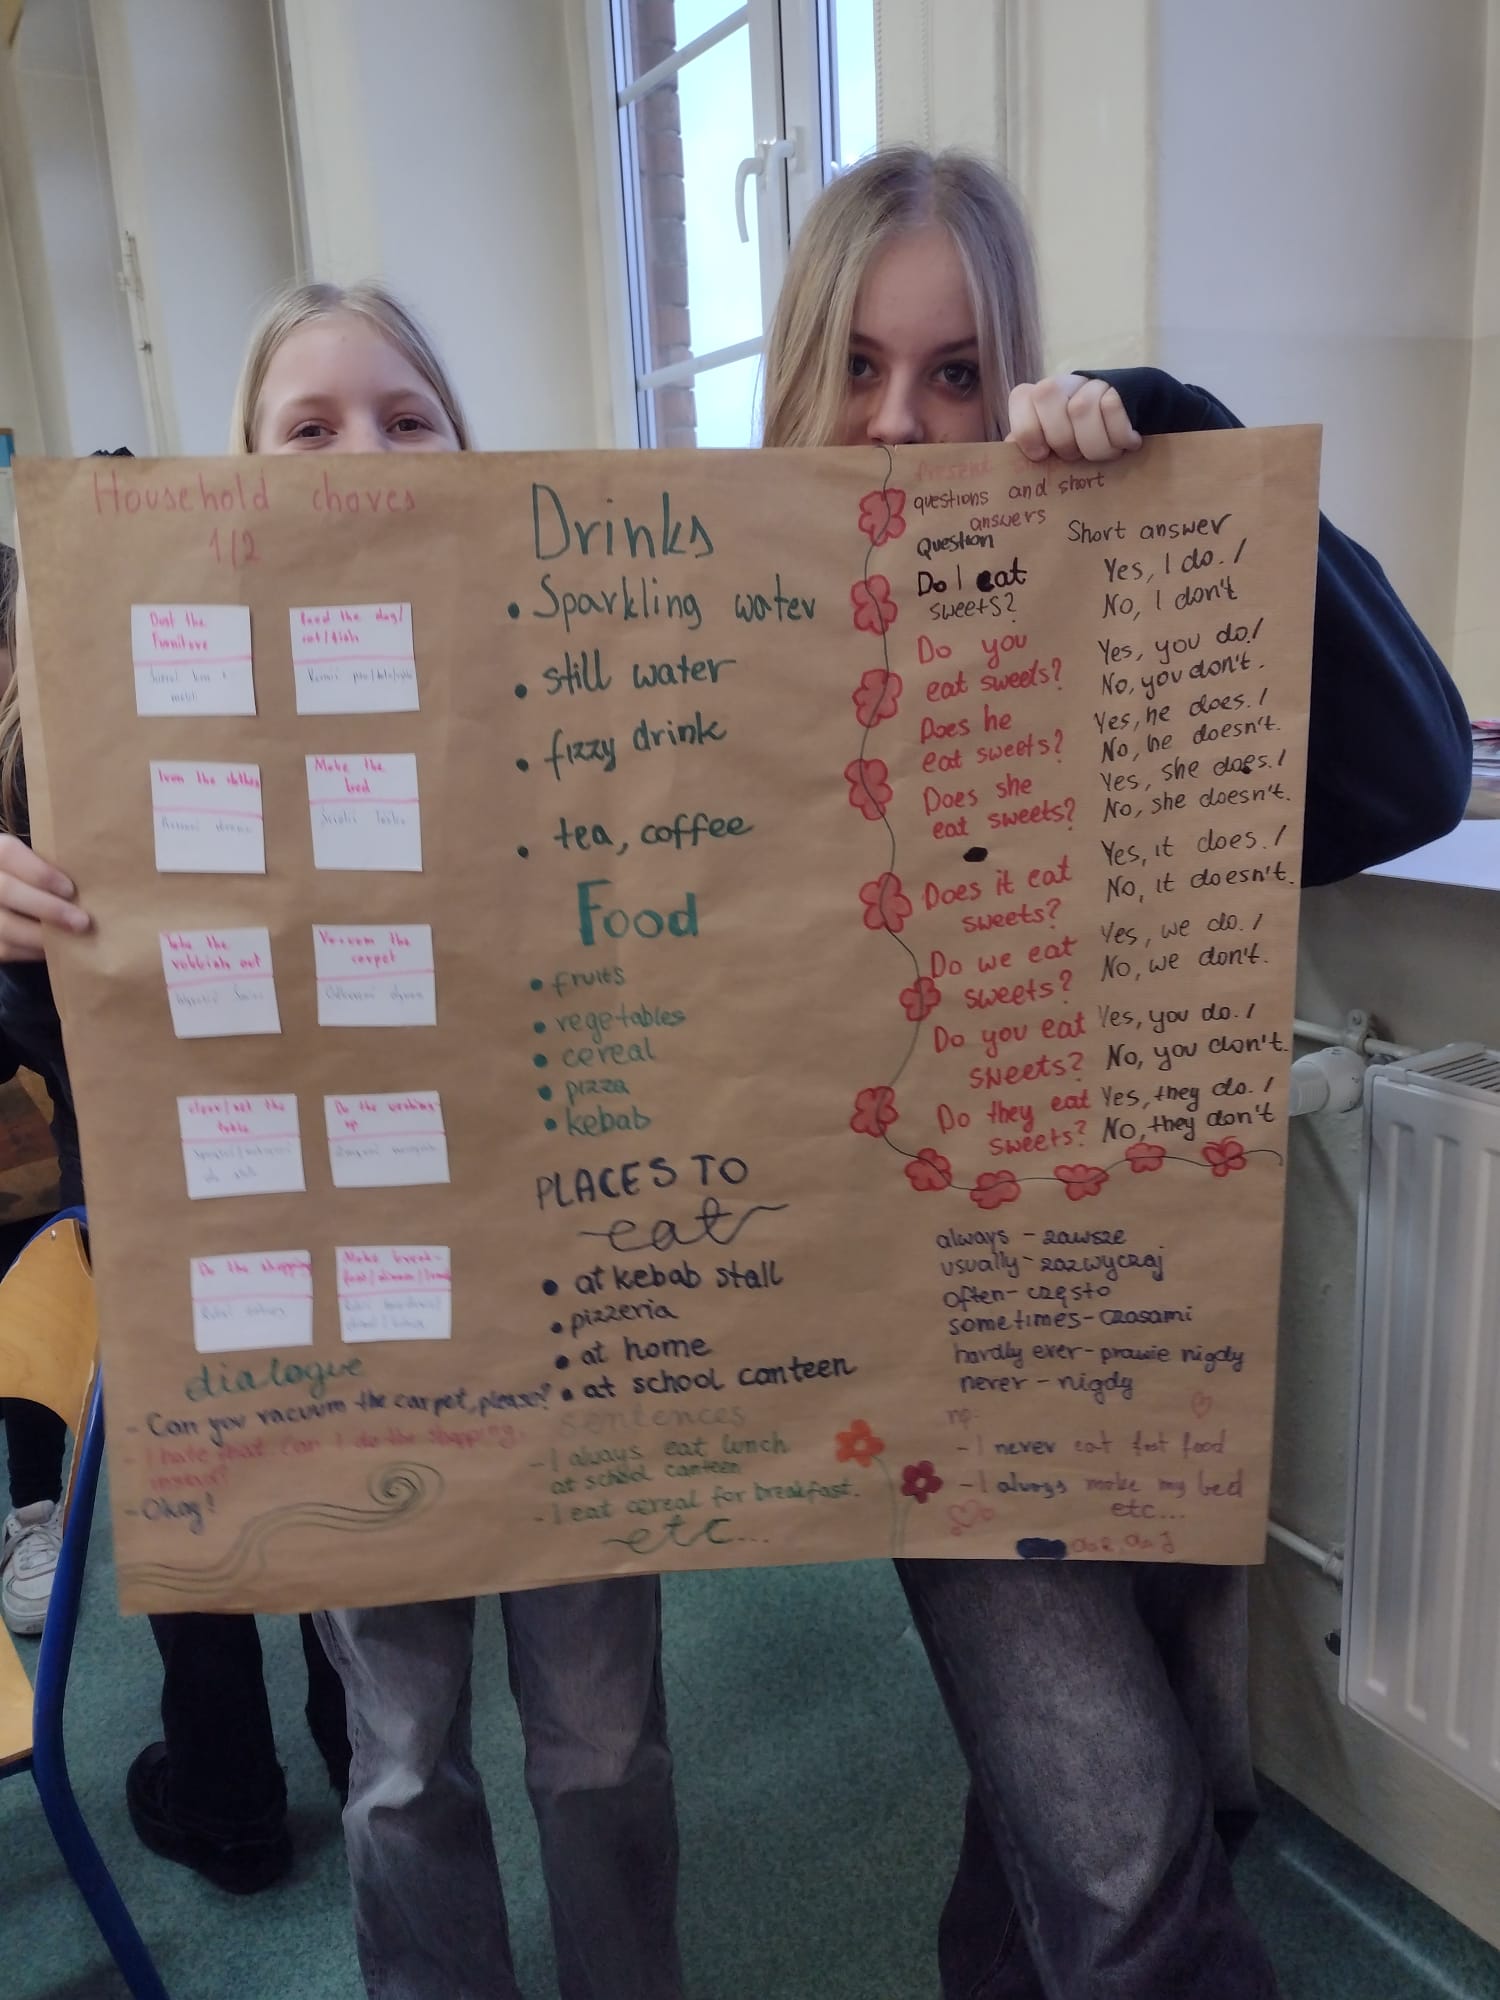 Household chores
1/2
Dust the
furniture
Feed the dog/
cat/fish
Iron the clothes
Make the
bed
Take the
rubbish out
Vacuum the
carpet
clear/set the
table
Do the washing-
up
Do the shopping
Make break-
fast/dinner/lunch
dialogue
- Can you vacuum the carpet, please?
- I hate that. Can I do the shopping,
instead?
- Okay!
Drinks
• Sparkling water
• still water
• fizzy drink
• tea, coffee
Food
• fruits
• vegetables
• cereal
• pizza
• kebab
PLACES TO
eat
• at kebab stall
• pizzeria
• at home
• at school canteen
sentences
- I always eat lunch
at school canteen
- I eat cereal for breakfast.
etc...
Present
questions and short
answers
Question Short answer
Do I eat Yes, I do. /
sweets? No, I don't
Do you Yes, you do. /
eat sweets? No, you don't.
Does he Yes, he does. /
eat sweets? No, he doesn't.
Does she Yes, she does. /
eat sweets? No, she doesn't.
Does it eat Yes, it does. /
sweets? No, it doesn't.
Do we eat Yes, we do. /
sweets? No, we don't.
Do you eat Yes, you do. /
sweets? No, you don't.
Do they eat Yes, they do. /
sweets? No, they don't
always - zawsze
usually - zazwyczaj
often - często
sometimes - czasami
hardly ever - prawie nigdy
never - nigdy
np.
- I never eat fast food
- I always make my bed
etc...